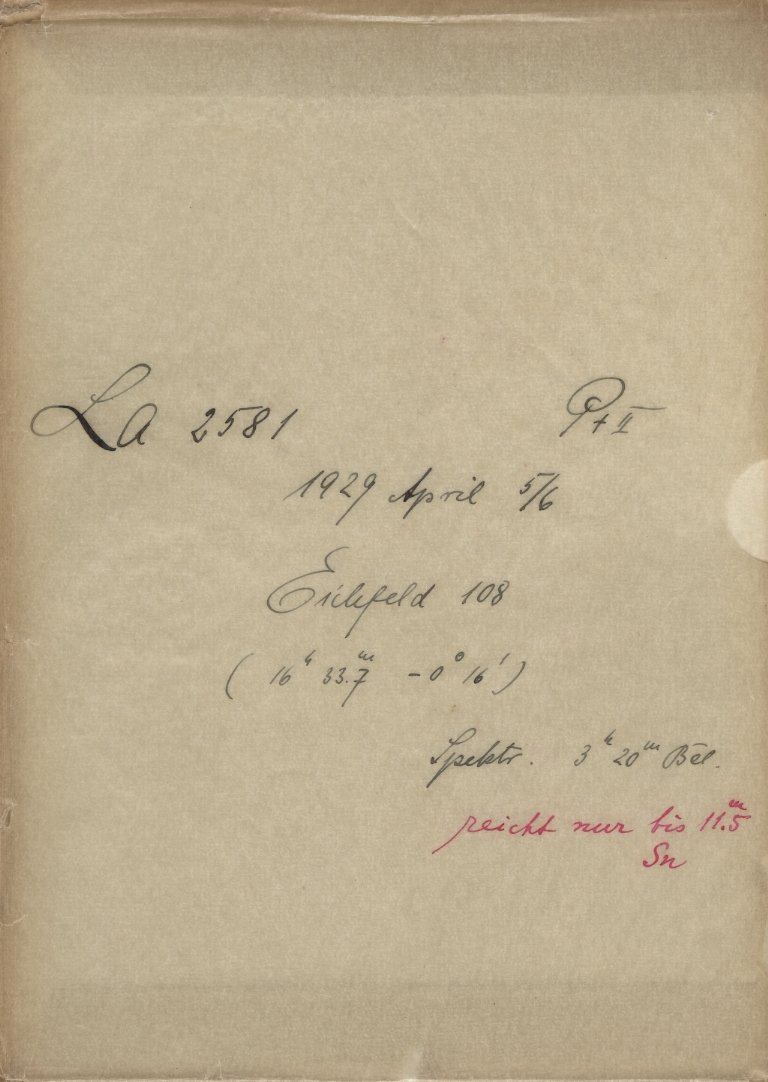 La 2581 P+II
1929 April 5/6
Eichfeld 108
( 16ʰ 33.ᵐ7 –0° 16' )
Spektr. 3ʰ 20ᵐ Bel.
reicht nur bis 11.ᵐ5
Sn